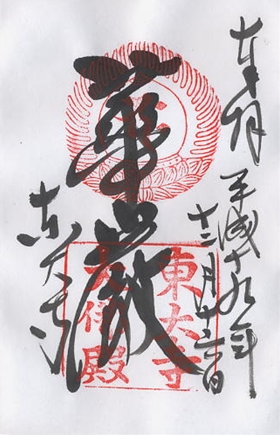 奉拝 平成十九年
十二月十三日
華厳
東大寺
東大寺
大佛殿